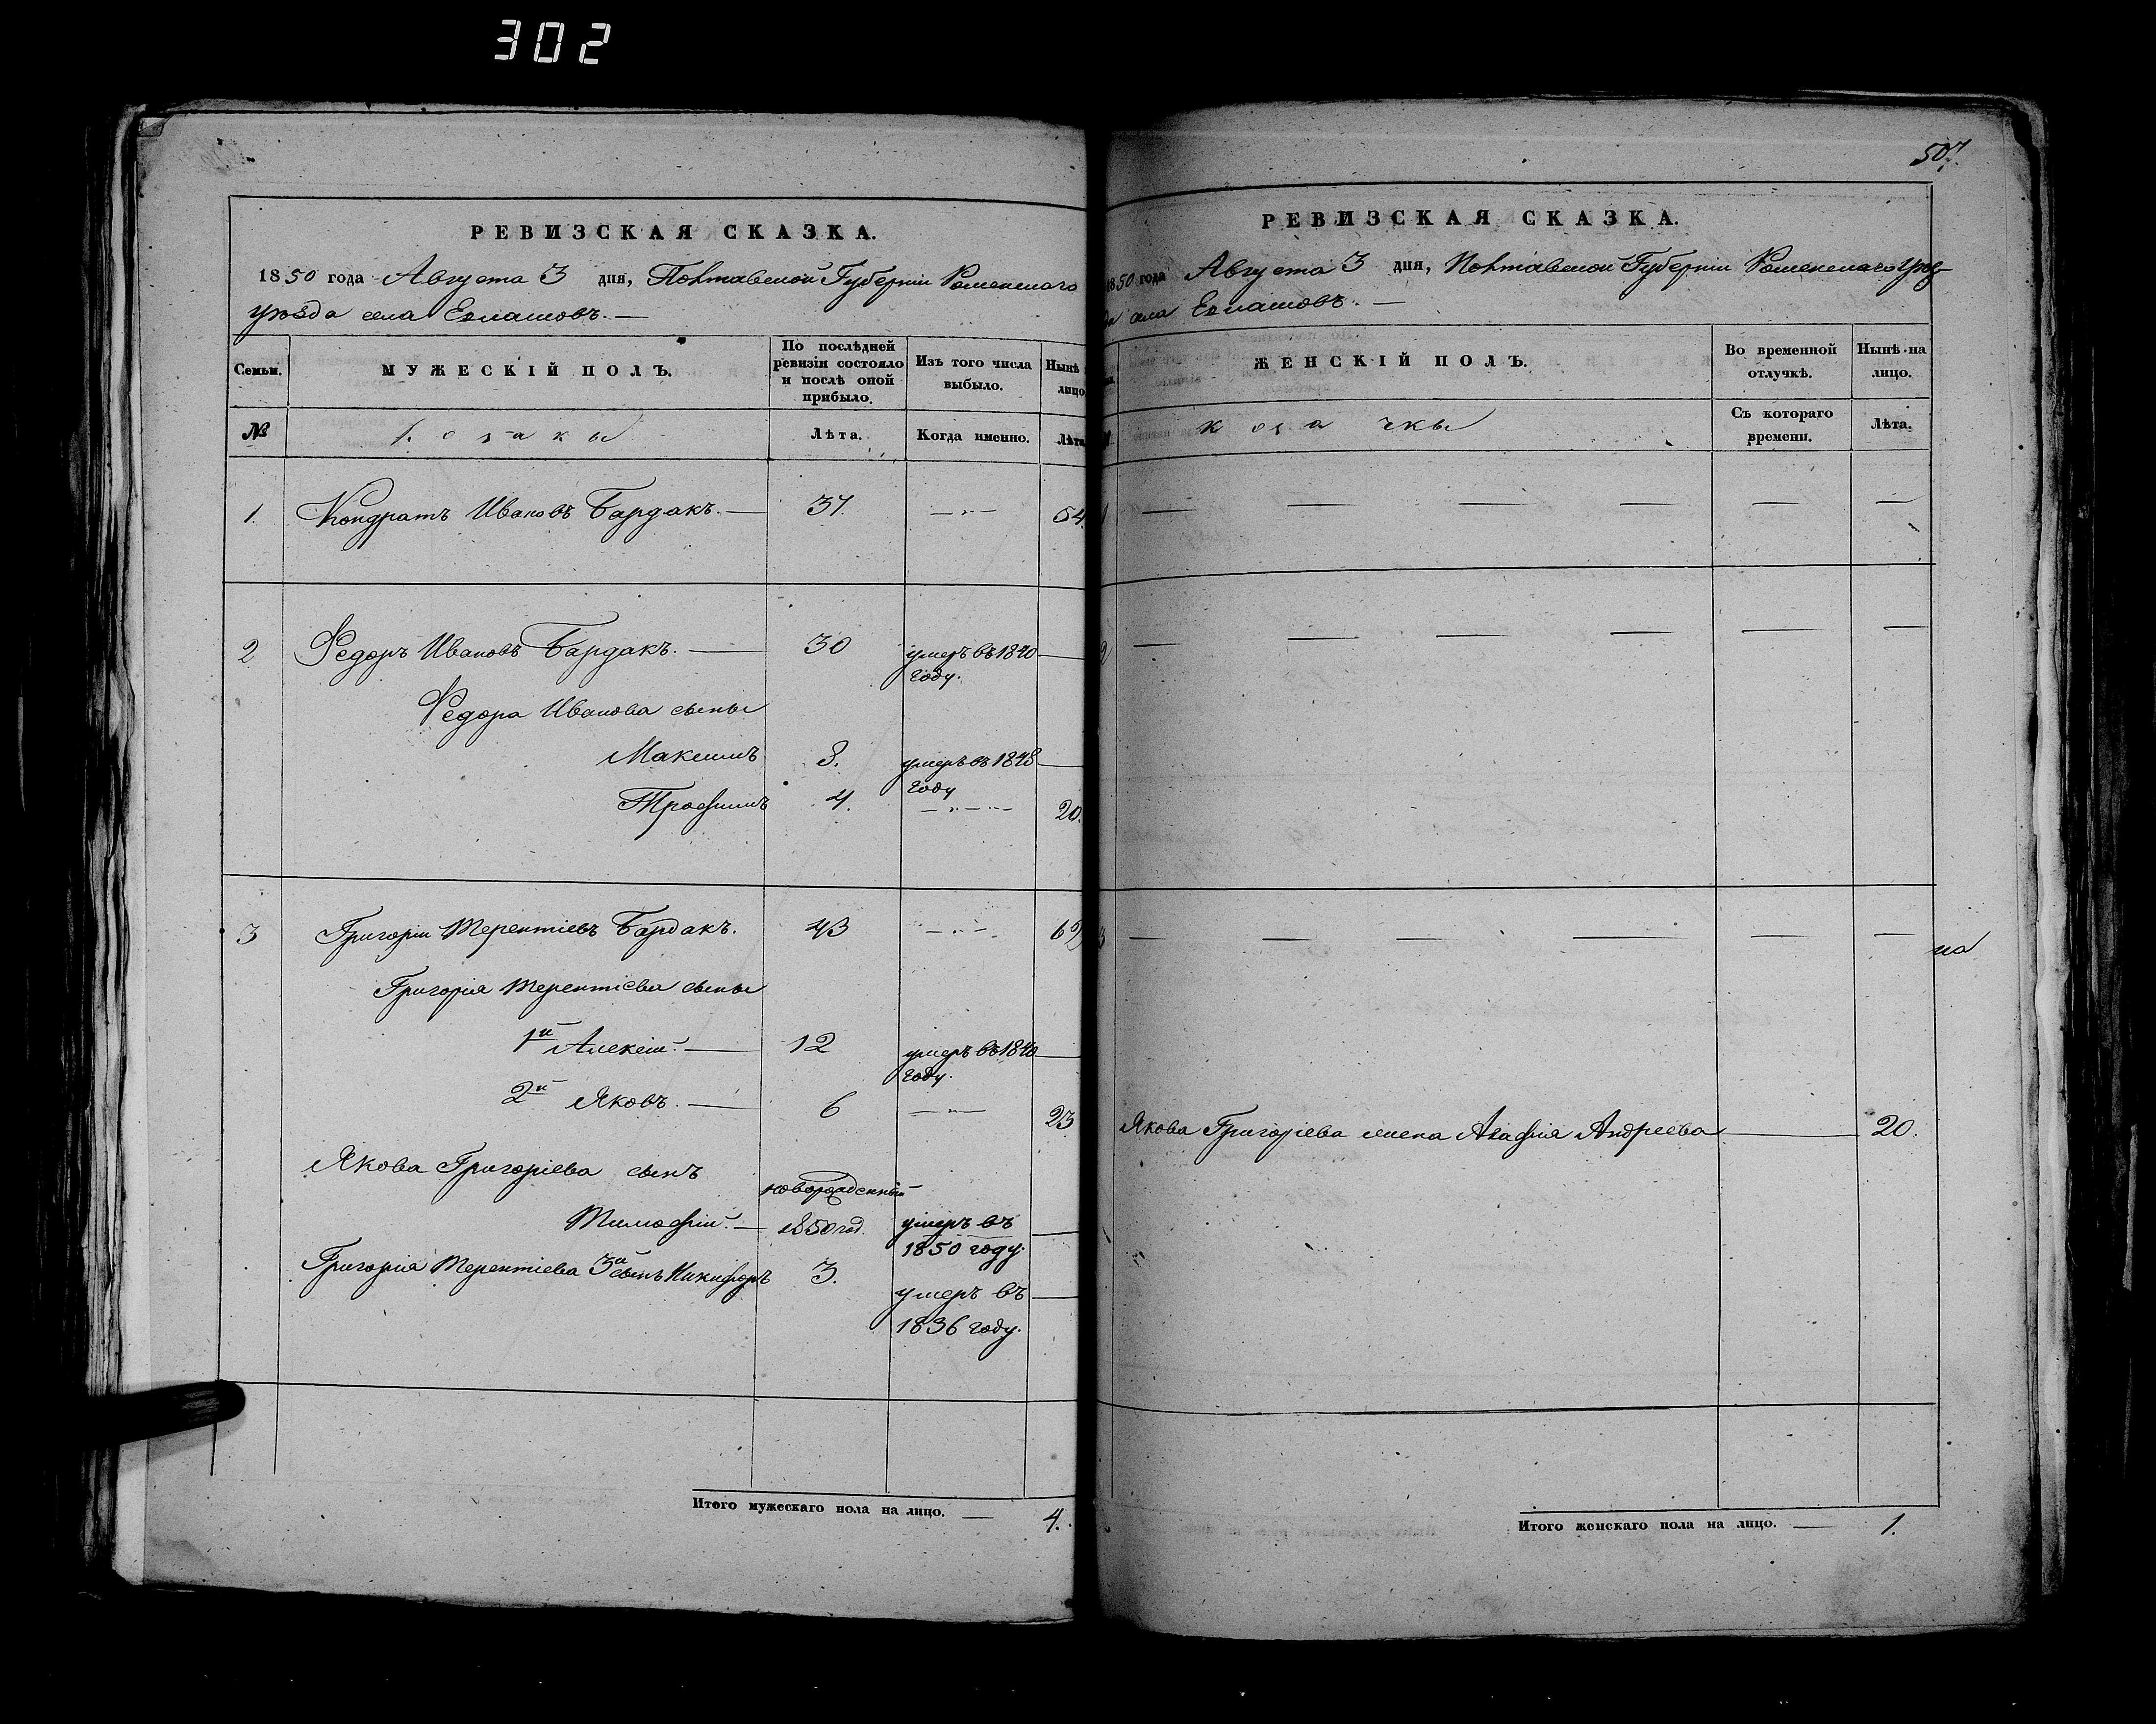 302
РЕВИЗСКАЯ СКАЗКА.
1850 года Августа 3 дня, Полтавской Губерніи Роменскаго
уѣзда села Еглашовъ. —
Семьи.
МУЖЕСКІЙ ПОЛЪ.
По послѣдней ревизіи состояло и послѣ оной прибыло.
Изъ того числа выбыло.
Нынѣ лицо
№
козаки
Лѣта.
Когда именно.
Лѣта
1. Кондратъ Ивановъ Бардакъ. — 37. — „ — 54.
2 Федоръ Ивановъ Бардакъ. — 30 умеръ въ 1840 —
году.
Федора Иванова сыны
Максимъ 8. умеръ въ 1848 —
году
Трофимъ 4. — „ — 20.
3 Григорій Терентіевъ Бардакъ. 43 — „ —
Григорія Терентіева сыны
1й Алексій. — 12 умеръ въ 1840 —
году.
2й Яковъ. — 6 — „ — 23
Якова Григоріева сынъ
новорожденный
Тимофій. — 1850 год. умеръ въ —
1850 году.
Григорія Терентіева 3й сынъ Никифоръ 3.
умеръ въ —
1836 году.
Итого мужескаго пола на лицо. — 4.
507.
РЕВИЗСКАЯ СКАЗКА.
1850 года Августа 3 дня, Полтавской Губерніи Роменскаго Уѣз-
да села Еглашовъ. —
ЖЕНСКІЙ ПОЛЪ.
Во временной отлучкѣ.
Нынѣ на лицо.
козачки
Съ котораго времени.
Лѣта.
1 — — — — — —
2 — — — — — —
3 — — — — — —
на
Якова Григоріева жена Агафія Андреева — 20.
Итого женскаго пола на лицо. — 1.